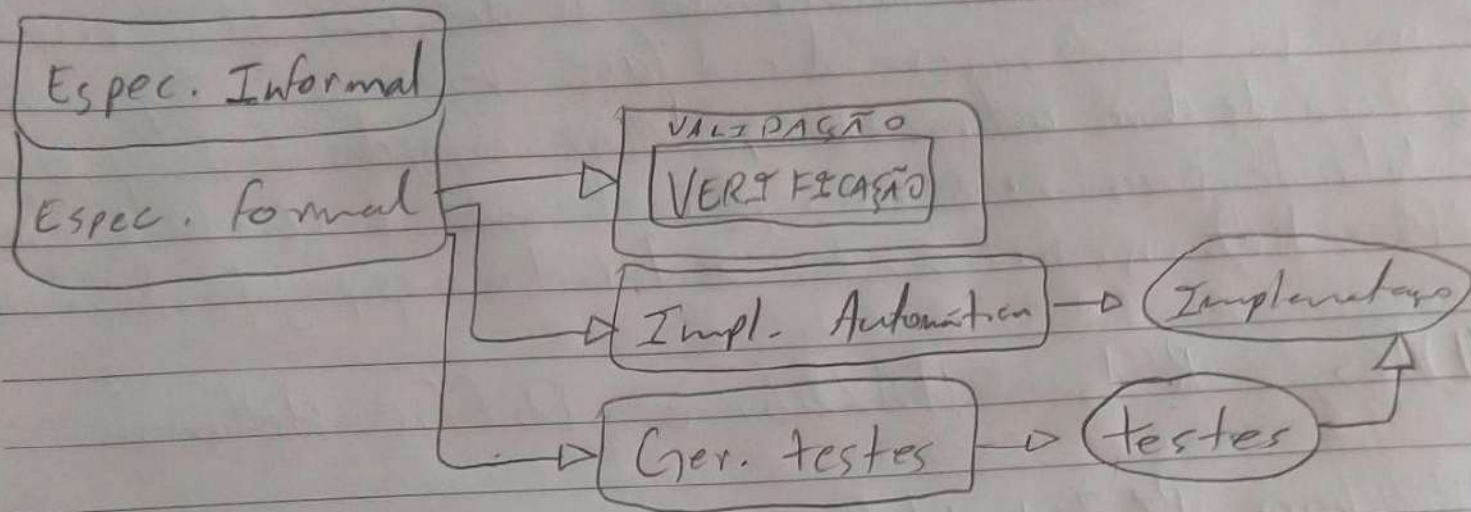 Espec. Informal
Espec. formal
VALIDAÇÃO
VERIFICAÇÃO
Impl. Automática
Implementação
Ger. testes
testes